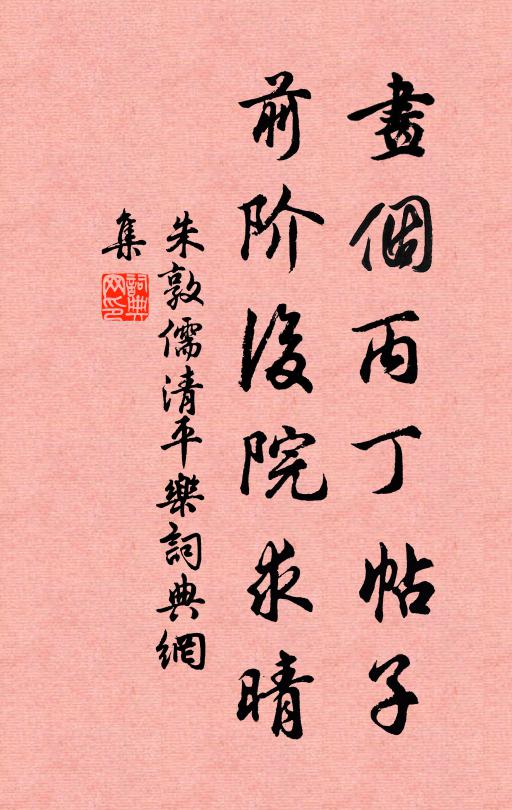 畫個丙丁帖子
前阶後院求晴
朱敦儒清平樂詞典網
集
詞典网印